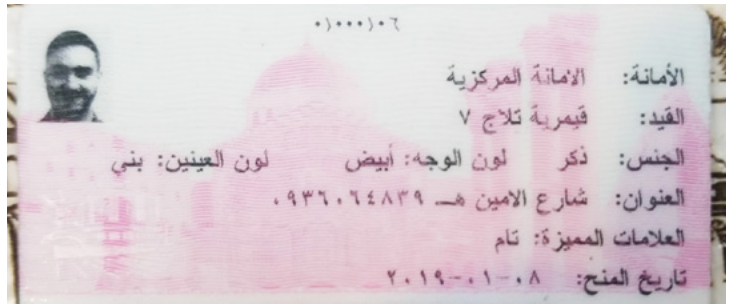 ٠١٠٠٠١٠٦
الأمانة: الامانة المركزية
القيد: قيمرية تلاج ٧
الجنس: ذكر لون الوجه: أبيض لون العينين: بني
العنوان: شارع الامين هـ ٠٩٣٦٠٦٤٨٣٩
العلامات المميزة: تام
تاريخ المنح: ٠٨-٠١-٢٠١٩